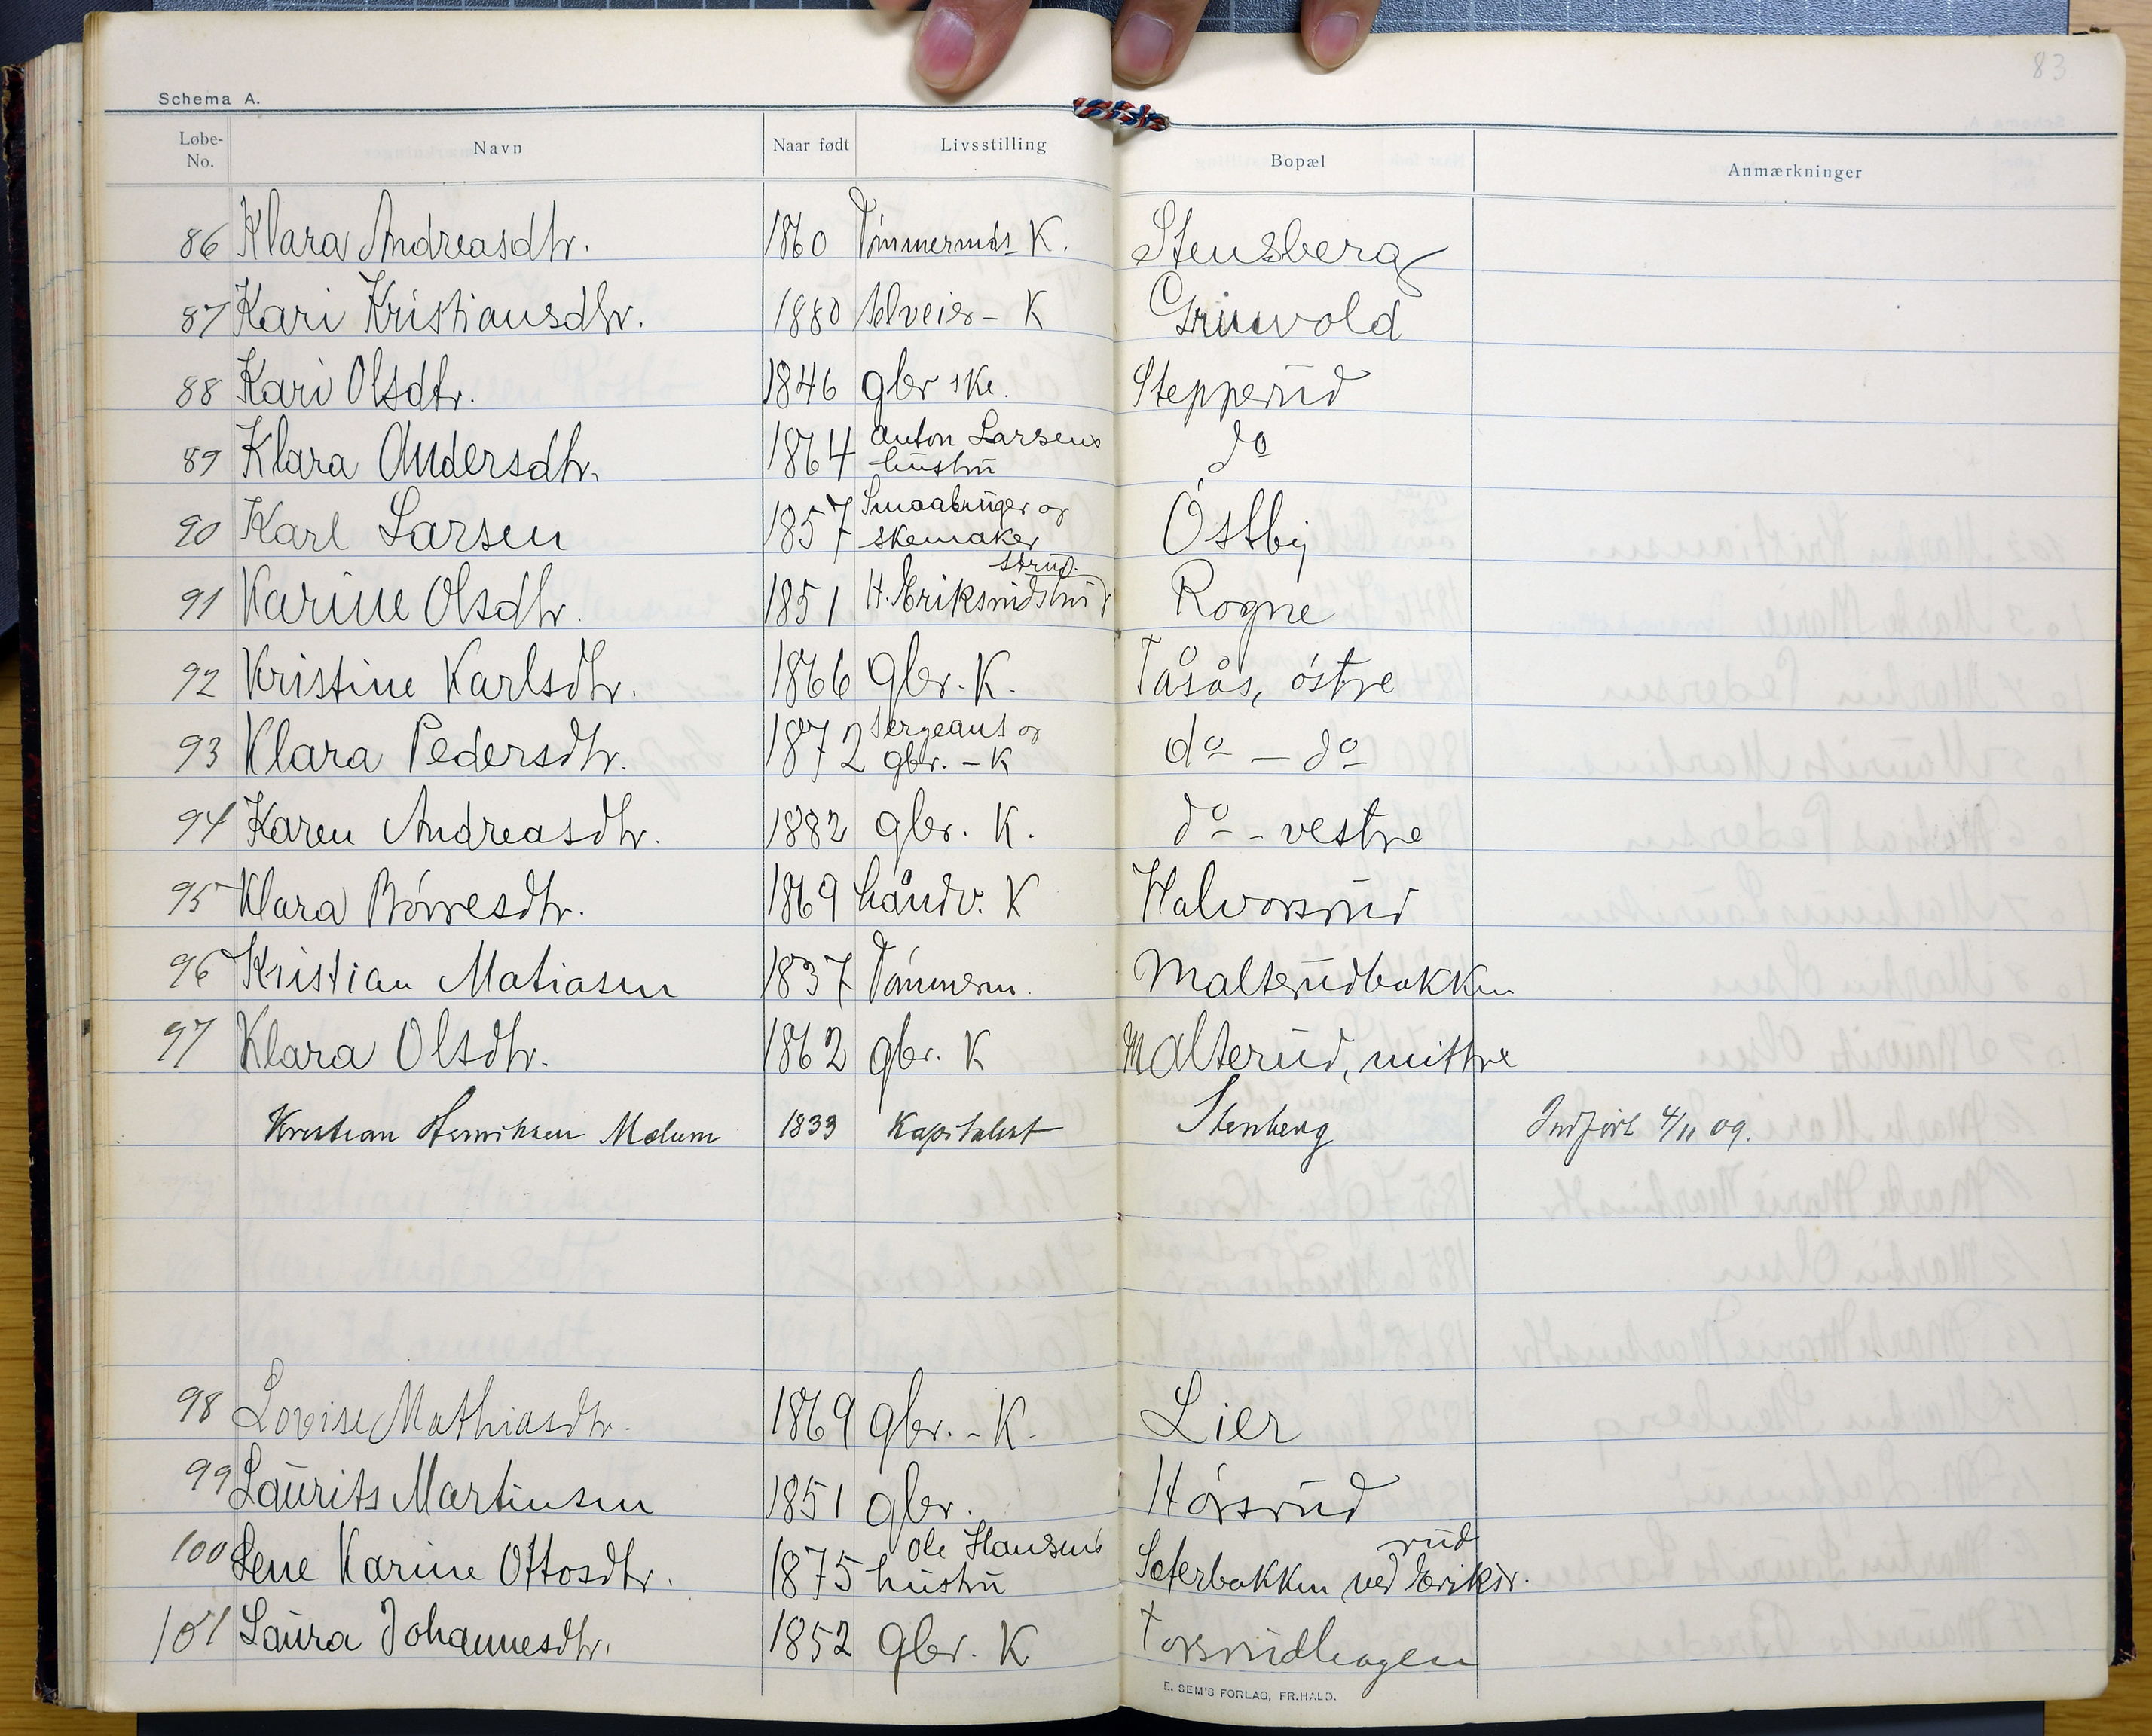 83
Schema A.
Løbe-No. Navn Naar født Livsstilling Bopæl Anmærkninger
86 Klara Andreasdtr. 1860 Tømmermds K. Stensberg
87 Kari Kristiansdtr. 1880 Selveier - K Grinvold
88 Kari Olsdtr. 1846 gbr ske. Stepperud
89 Klara Andersdtr. 1864 Anton Larsens hustru do
90 Karl Larsen 1857 Smaabruger og skomaker Østby
91 Karine Olsdtr. 1851 H. Eriksruds Rogne
92 Kristine Karlsdtr. 1866 Gbr. K. Tåsås, østre
93 Klara Pedersdtr. 1872 Sergeant og gbr. - K do - do
94 Karen Andreasdtr. 1882 gbr. K. do - vestre
95 Klara Børresdtr. 1869 håndv. K Halvorsrud
96 Kristian Matiasen 1837 Tømmerm. Malterudbakken
97 Klara Olsdtr. 1862 gbr. K Malterud, mittre
Kristian Henriksen Mælum 1833 Kapitalist Stenberg Indført 4/11 09.
98 Lovise Mathiasdtr. 1869 gbr. - K. Lier
99 Laurits Martinsen 1851 gbr. Hørsrud
100 Lene Karine Ottosdtr. 1875 Ole Hansens hustru Sæterbakken ved Eriksr. rud
101 Laura Johannesdtr. 1852 gbr. K Torsrudhagen
E. SEM'S FORLAG, FR.HALD.